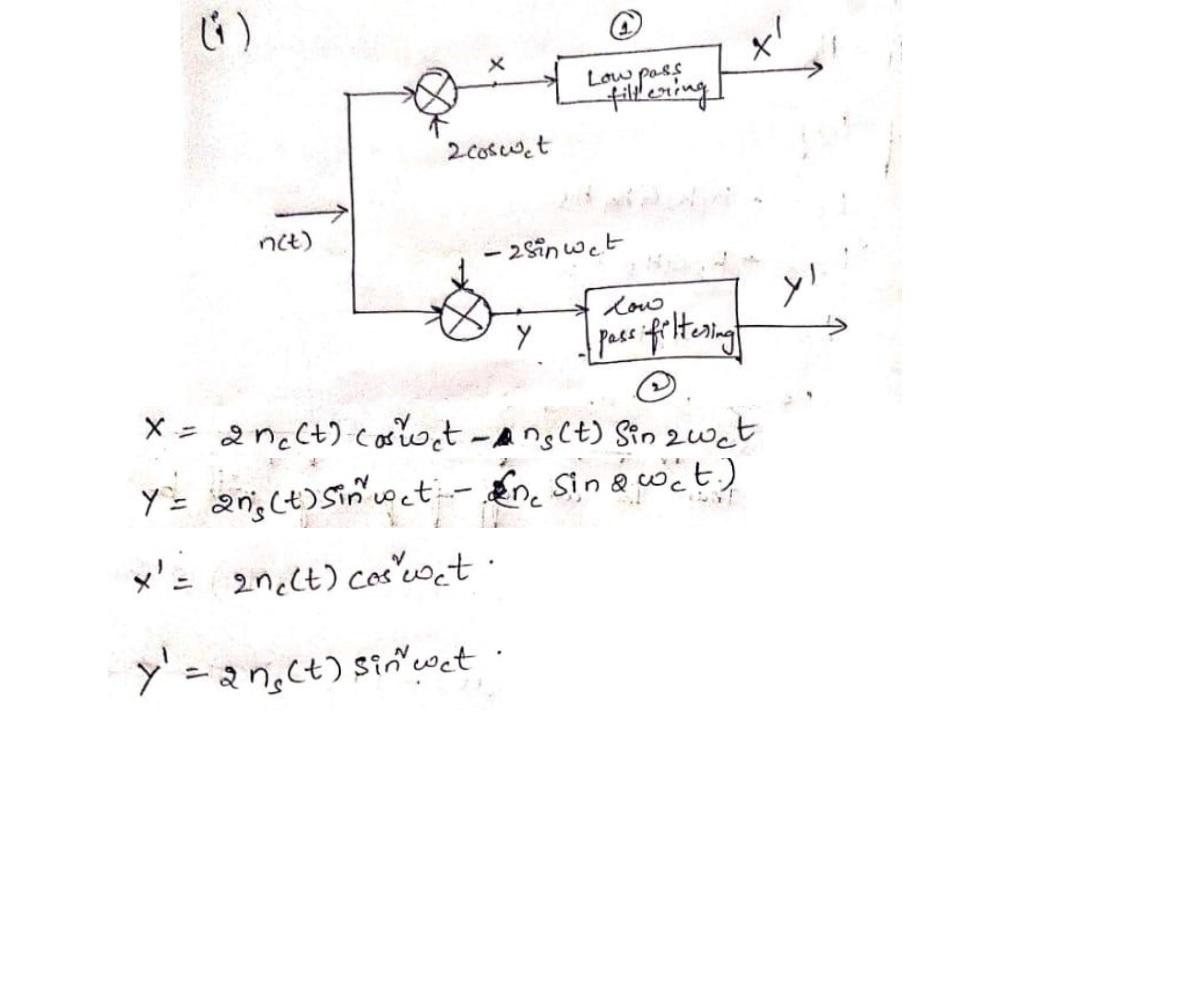 (i)
①
x
Low pass
filtering
x'
2cosω_ct
n(t)
- 2sinω_ct
y
Low
pass filtering
y'
②
x = 2n_c(t) cos²ω_ct - n_s(t) Sin 2ω_ct
y = 2n_s(t) sin²ω_ct - n_c Sin 2ω_ct)
x' = 2n_c(t) cos²ω_ct .
y' = 2n_s(t) sin²ω_ct .